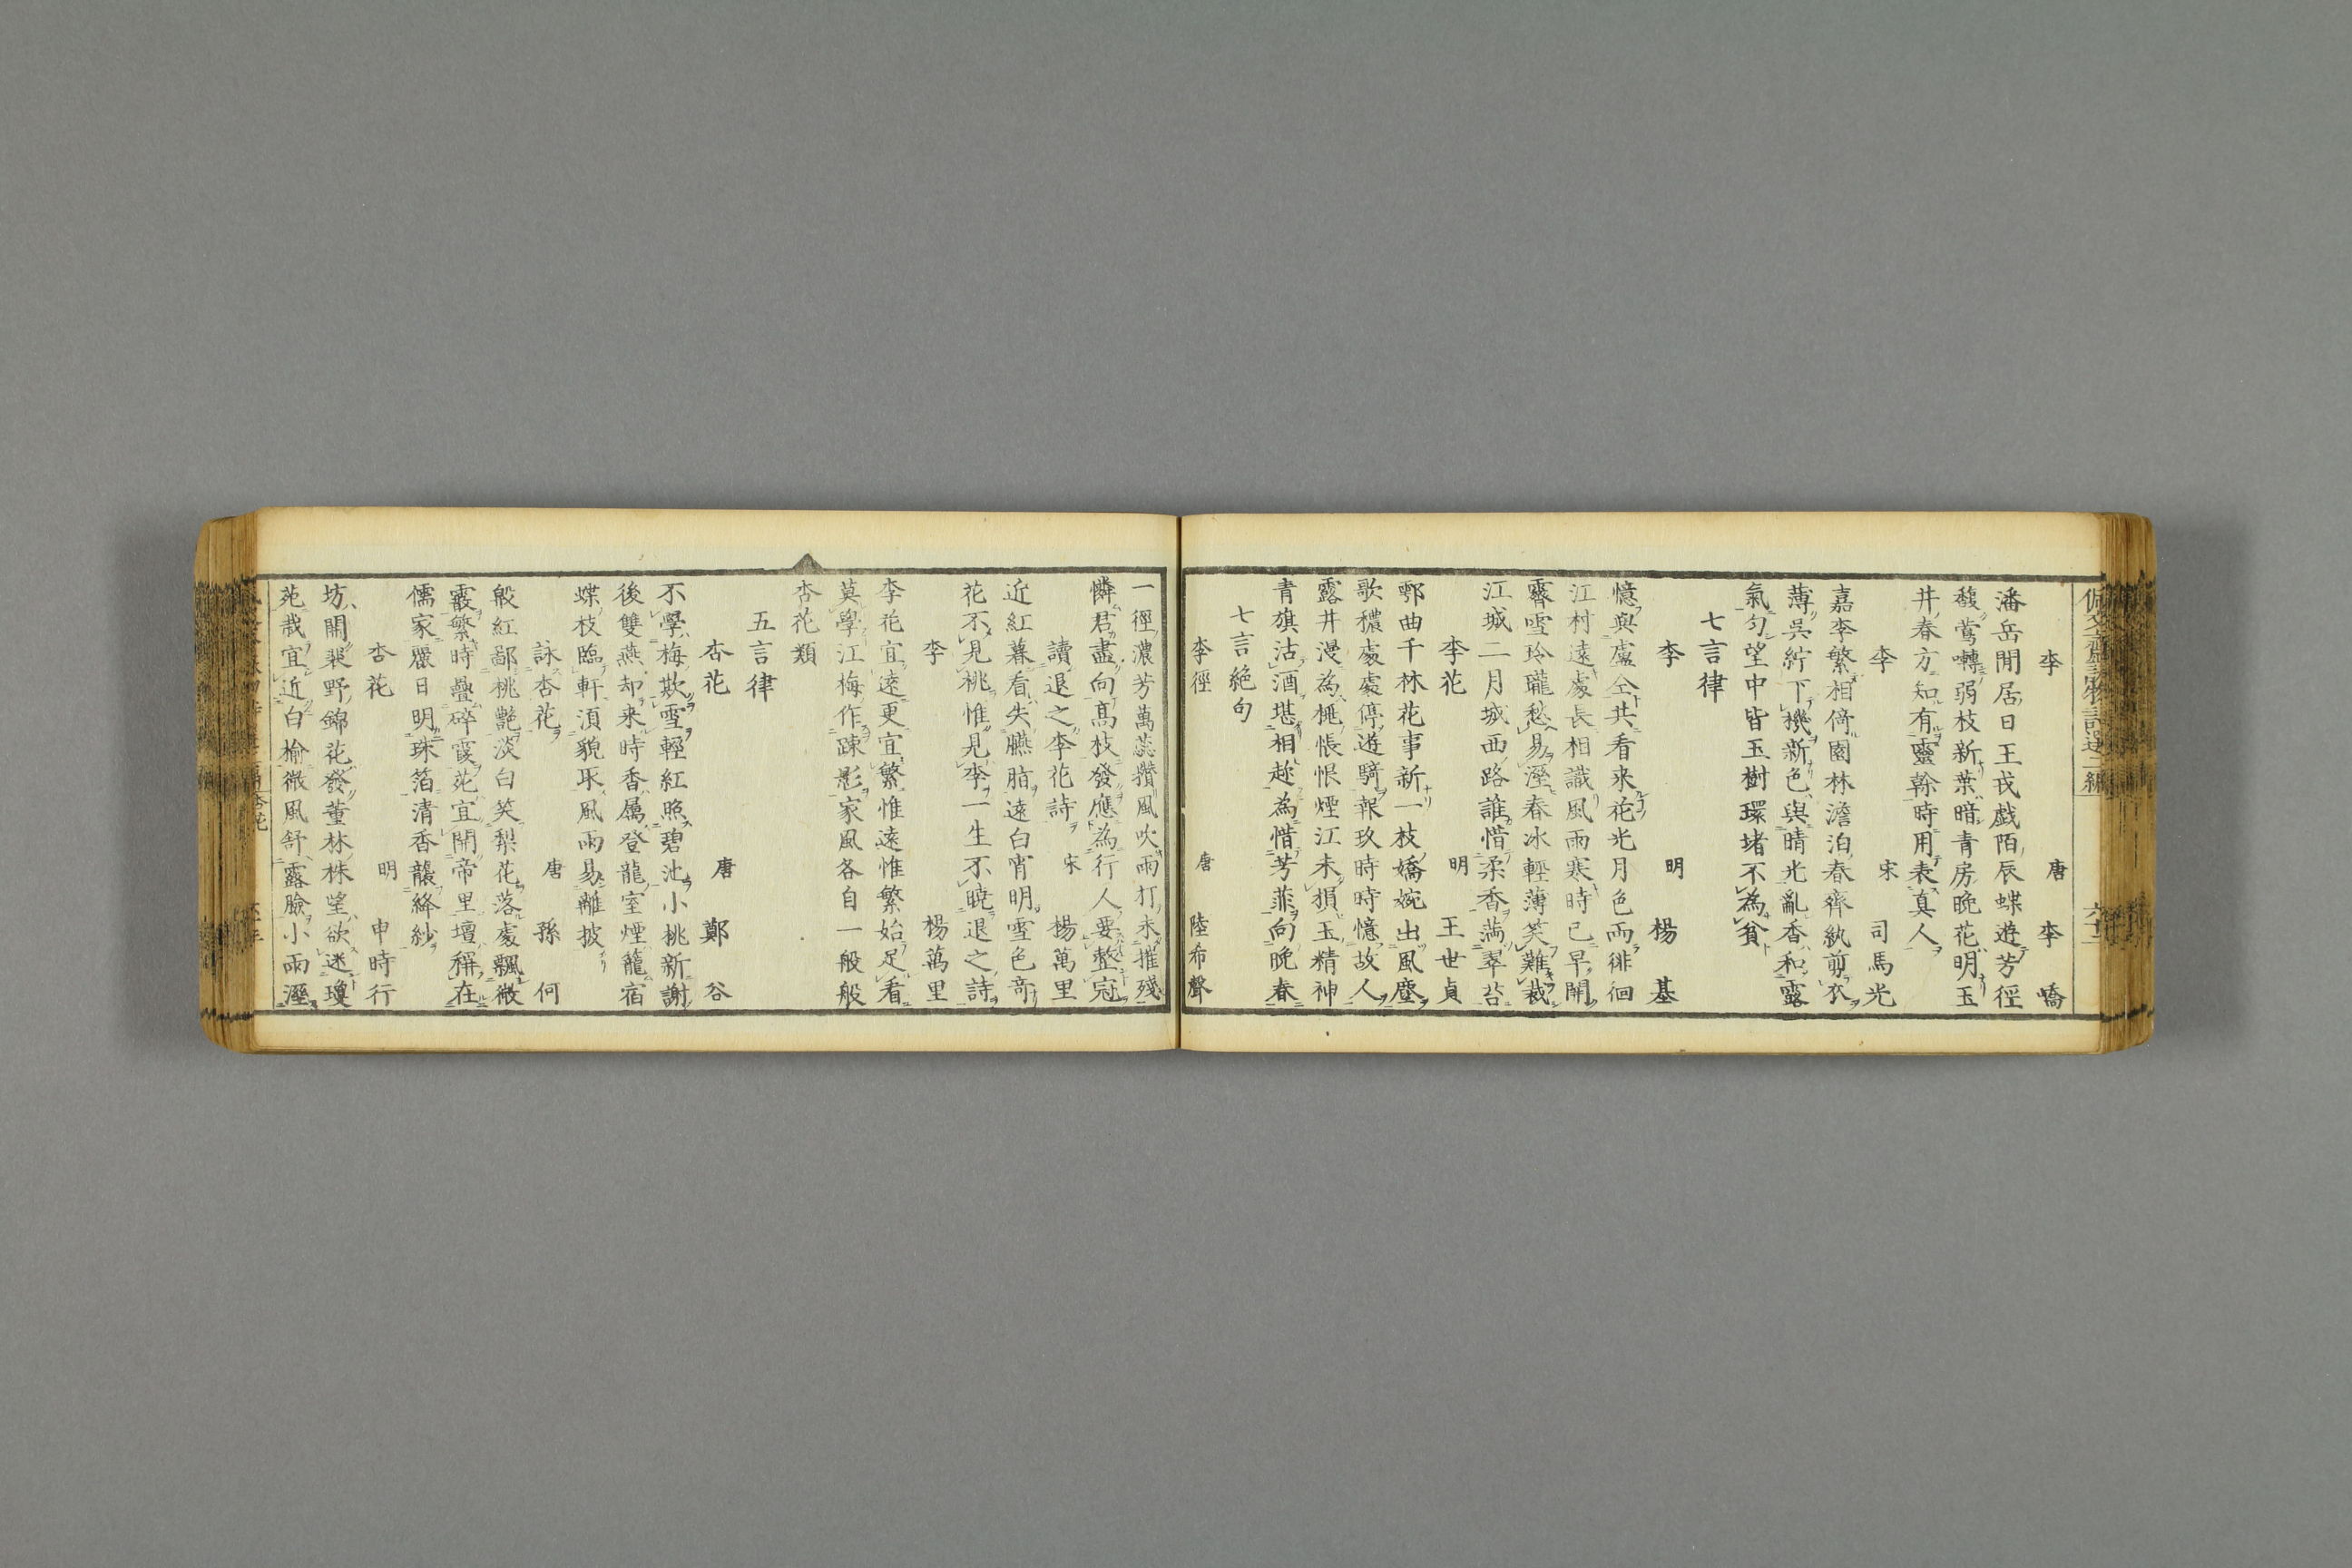 李 唐 李嶠
潘岳閒居日王戎戯陌辰蝶遊芳徑
馥鶯囀弱枝新葉暗青房晩花明玉
井春方知有靈幹時用表真人
李 宋 司馬光
嘉李繁相倚園林澹泊春齊紈剪衣
薄吳紵下機新色與晴光亂香和露
氣匀望中皆玉樹環堵不為貧
七言律
李 明 楊基
憶與盧仝共看来花光月色两徘徊
江村遠處長相識風雨寒時已早開
霽雪玲瓏愁易溼春冰輕薄笑難裁
江城二月城西路誰惜柔香満翠苔
李花 明 王世貞
鄠曲千林花事新一枝嬌婉出風塵
歌穠處處停遊騎報玖時時憶故人
露井漫為桃悵恨煙江未損玉精神
青旗沽酒堪相趂為惜芳菲向晩春
七言絶句
李徑 唐 陸希聲
一徑濃芳萬蕊攢風吹雨打未摧殘
憐君盡向髙枝發應為行人要整冠
讀退之李花詩 宋 楊萬里
近紅暮看失臙脂遠白宵明雪色竒
花不見桃惟見李一生不暁退之詩
李 楊萬里
李花宜遠更宜繁惟遠惟繁始足看
莫學江梅作踈影家風各自一般般
杏花類
五言律
杏花 唐 鄭谷
不學梅欺雪輕紅照碧池小桃新謝
後雙燕却来時香屬登龍室煙籠宿
蝶枝臨軒湏貌取風雨易離披
詠杏花 唐 孫何
殷紅鄙桃艶淡白笑梨花落處飄微
霰繁時疊碎霞苑宜開帝里壇稱在
儒家麗日明珠箔清香襲絳紗
杏花 明 申時行
坊開裴野錦花發董林株望欲迷瓊
苑栽宜近白榆微風舒露臉小雨溼